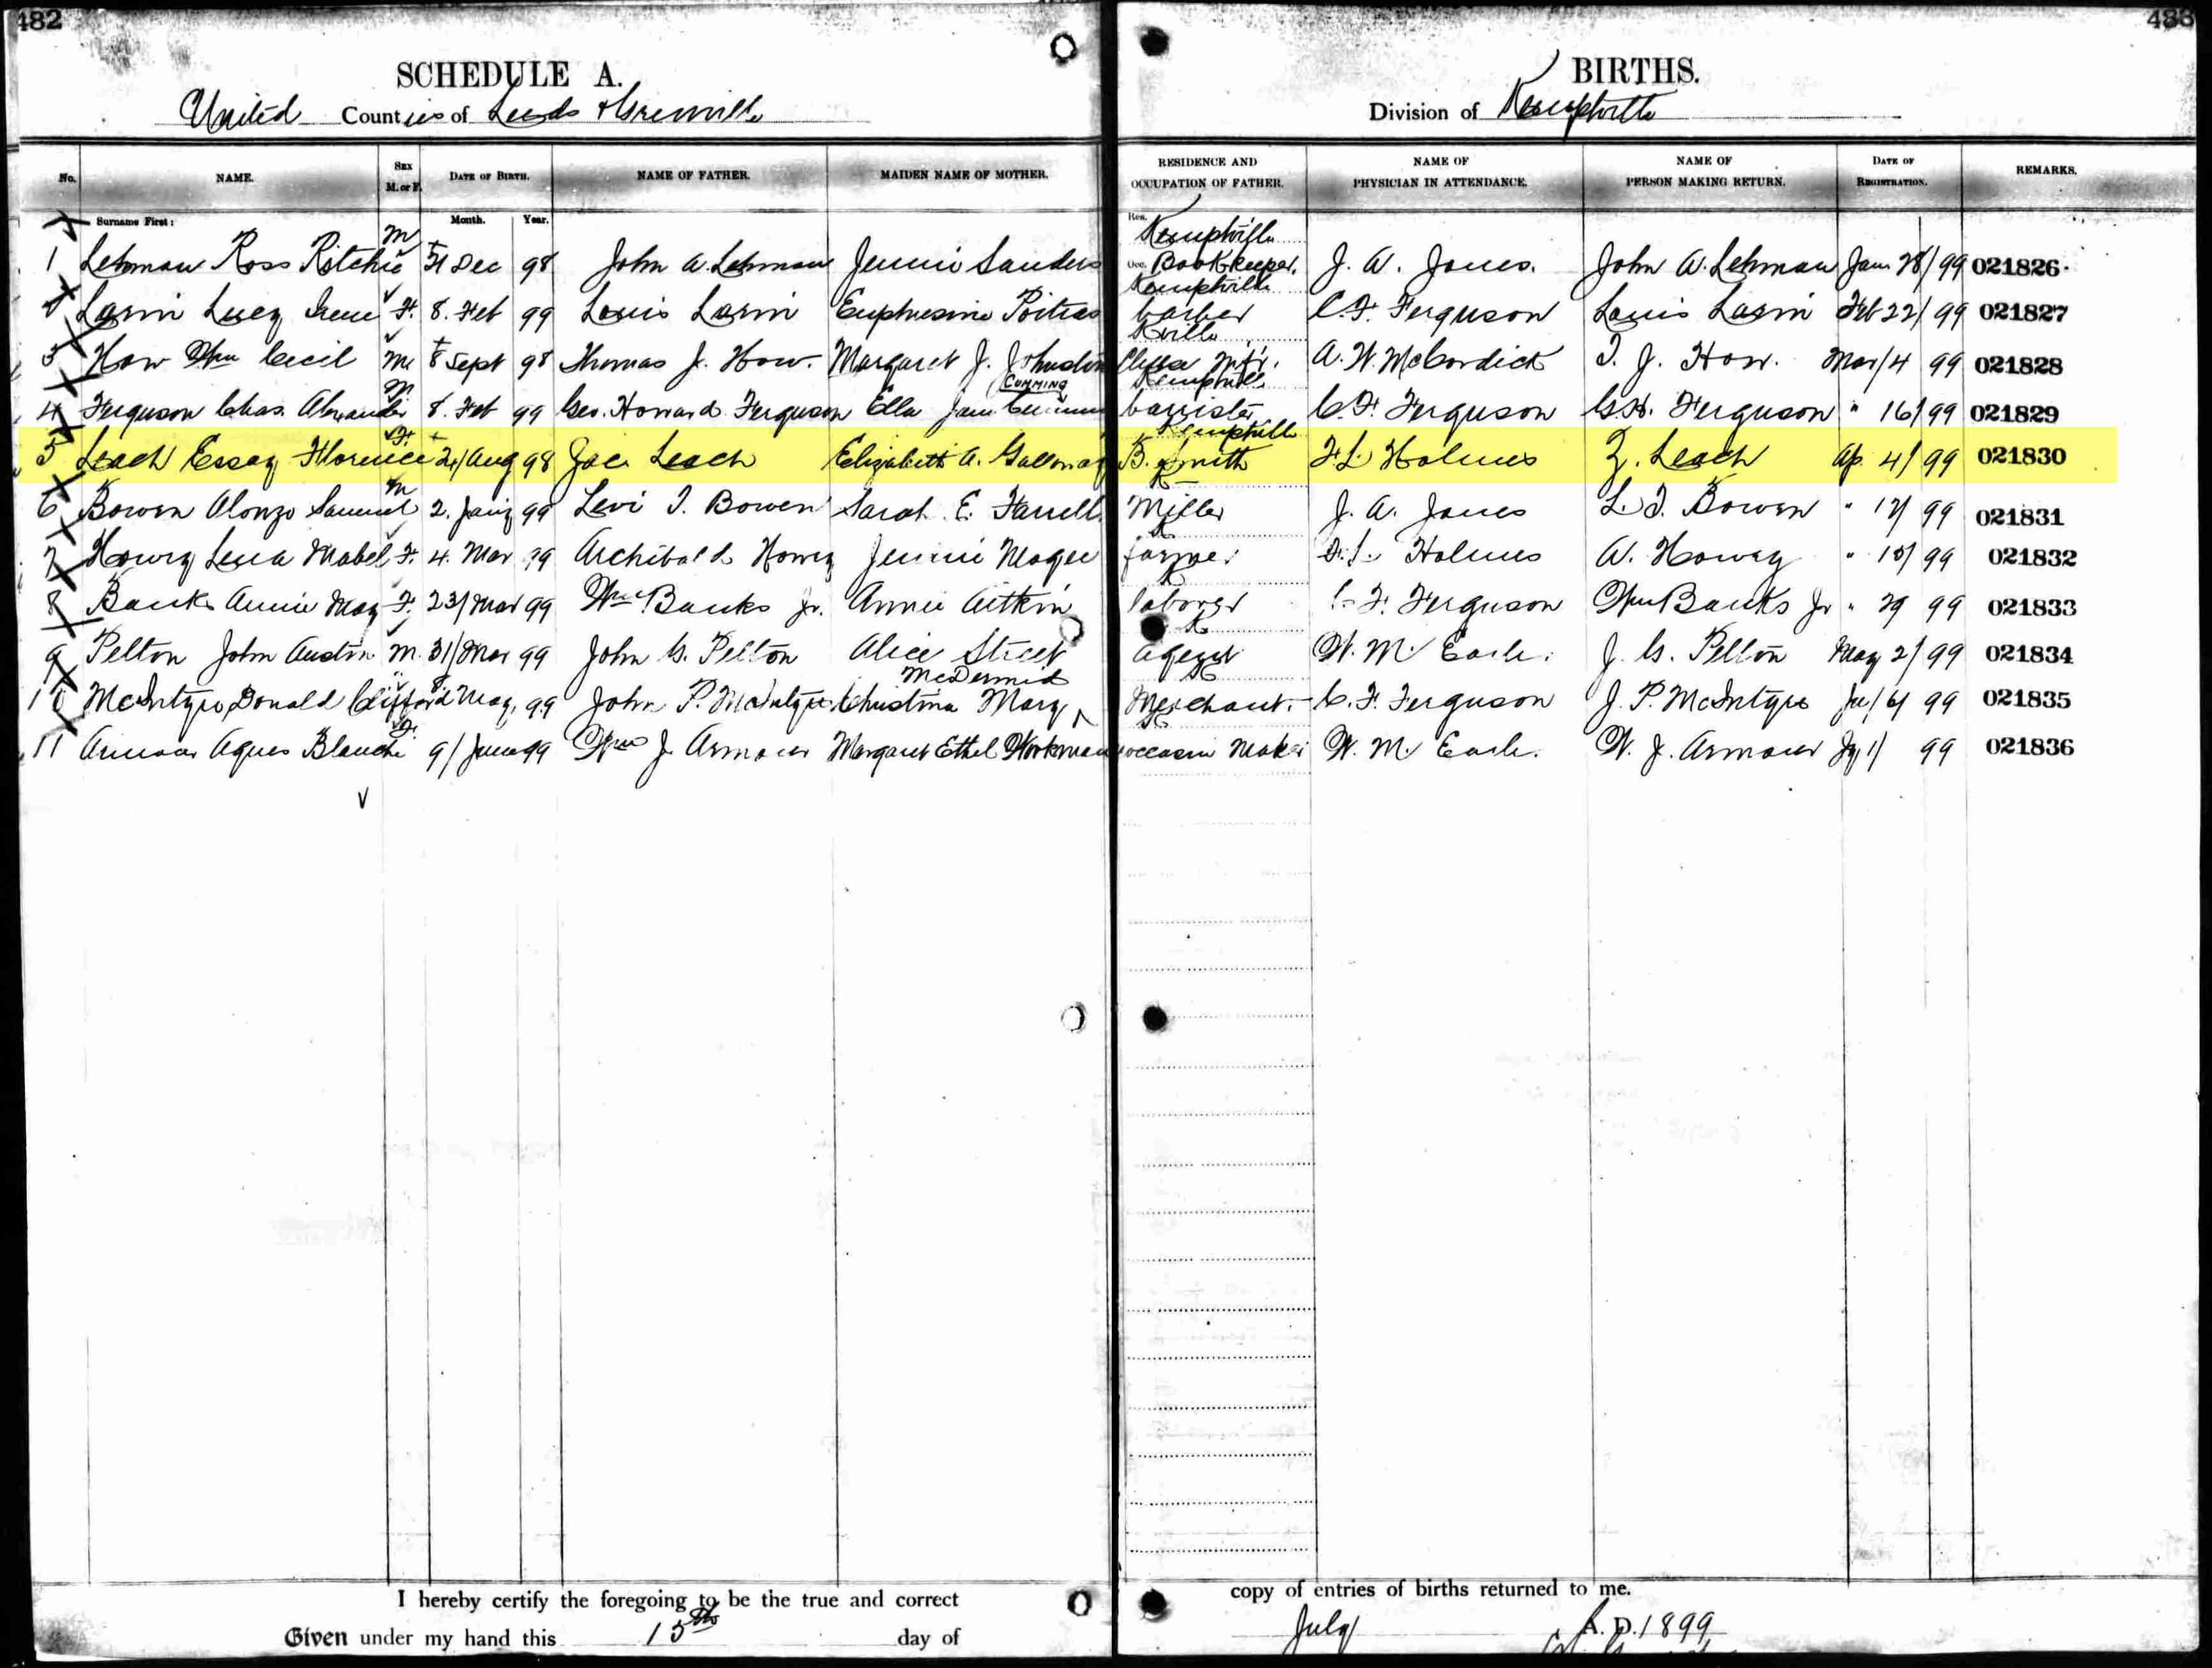 482
483
SCHEDULE A.
BIRTHS.
United Counties of Leeds & Grenville
Division of Kemptville
No.
NAME.
SEX M. or F.
DATE OF BIRTH.
NAME OF FATHER.
MAIDEN NAME OF MOTHER.
RESIDENCE AND OCCUPATION OF FATHER.
NAME OF PHYSICIAN IN ATTENDANCE.
NAME OF PERSON MAKING RETURN.
DATE OF REGISTRATION.
REMARKS.
Surname First:
Month.
Year.
Res.
Kemptville
1 Lehman Ross Ritchie M 31 Dec 98 John A. Lehman Jennie Sanders Occ. Bookkeeper. J. A. Jones. John A. Lehman Jan. 28/ 99 021826
Kemptville
Lucy Irene F. 8. Feb 99 Louis Euphresine Poitras barber C. F. Ferguson Louis Feb 22/ 99 021827
Kville
3 How Wm Cecil M 8 Sept 98 Thomas J. How. Margaret J. Johnston A. W. McCordick T. J. How. Mar/4 99 021828
CUMMING
Kemptville
4 Ferguson Chas. Alexander M 8. Feb 99 Geo. Howard Ferguson Ella Jane barrister C. F. Ferguson G. H. Ferguson " 16/ 99 021829
Kemptville
5 Leach Essay Florence F. 24/ Aug 98 Jac Leach Elizabeth A. Galloway B. Smith F. L. Holmes Z. Leach Ap. 4/ 99 021830
K
6 Bowen Alonzo Samuel M 2. Jany 99 Levi T. Bowen Sarah E. Farrell Miller J. A. Jones L. T. Bowen " 17/ 99 021831
K
7 Howey Lena Mabel F. 4. Mar 99 Archibald Howey Jennie Magee farmer F. L. Holmes A. Howey " 18/ 99 021832
K
8 Banks Annie May F. 23/ Mar 99 Wm Banks Jr. Annie Aitkin laborer C. F. Ferguson Wm Banks Jr " 29 99 021833
K
9 Pelton John Austin M. 31/ Mar 99 John G. Pelton Alice Street agent W. M. Earle. J. G. Pelton May 2/ 99 021834
McDermid
K
10 McIntyre Donald Clifford May, 99 John P. McIntyre Christina Mary Merchant. C. F. Ferguson J. P. McIntyre 6/ 99 021835
K
11 Armour Agnes Blanche F. 9/ June 99 Wm J. Armour Margaret Ethel Workman moccasin Maker W. M. Earle. W. J. Armour Jy 1/ 99 021836
I hereby certify the foregoing to be the true and correct
copy of entries of births returned to me.
Given under my hand this 15th day of
July A. D. 1899